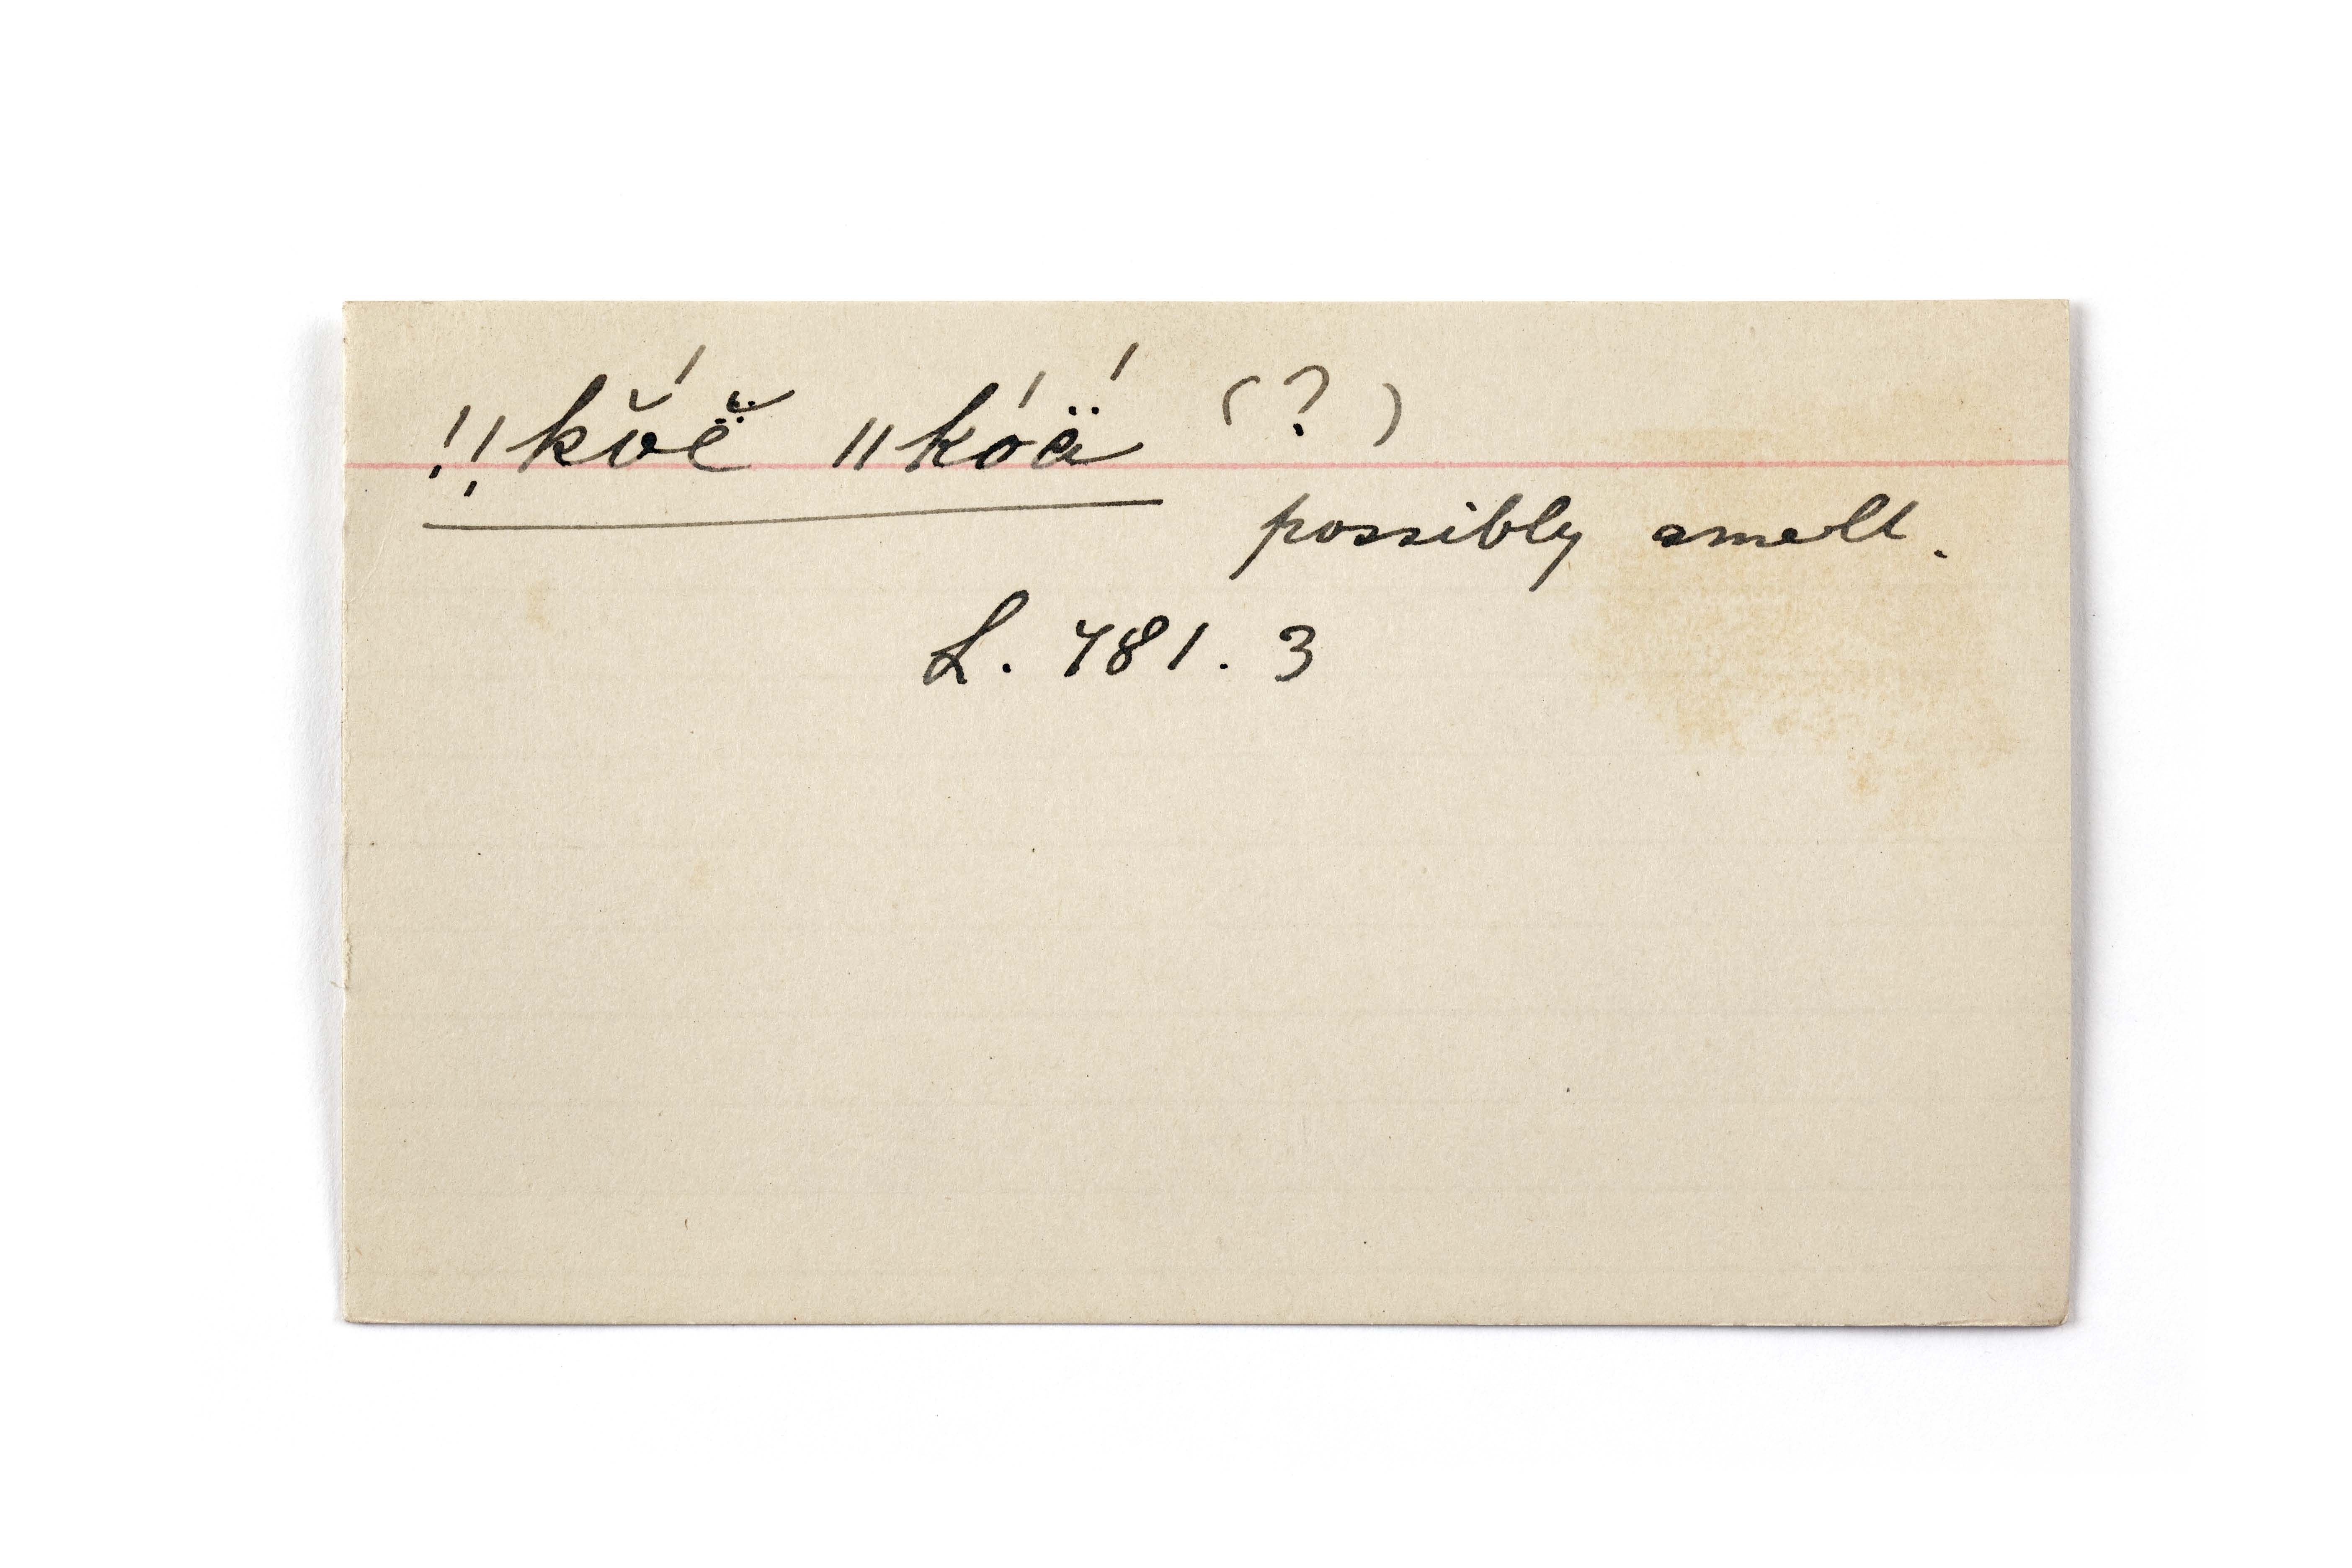 !!kŏ́ĕ̈ ǁkóä́ (?)
possibly smelt.
L. 781. 3